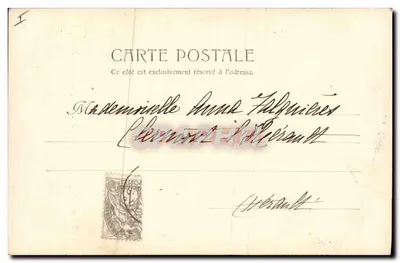 I
CARTE POSTALE
Ce côté est exclusivement réservé à l'adresse.
Mademoiselle Anna Falguières
Clermont l'Hérault
Hérault